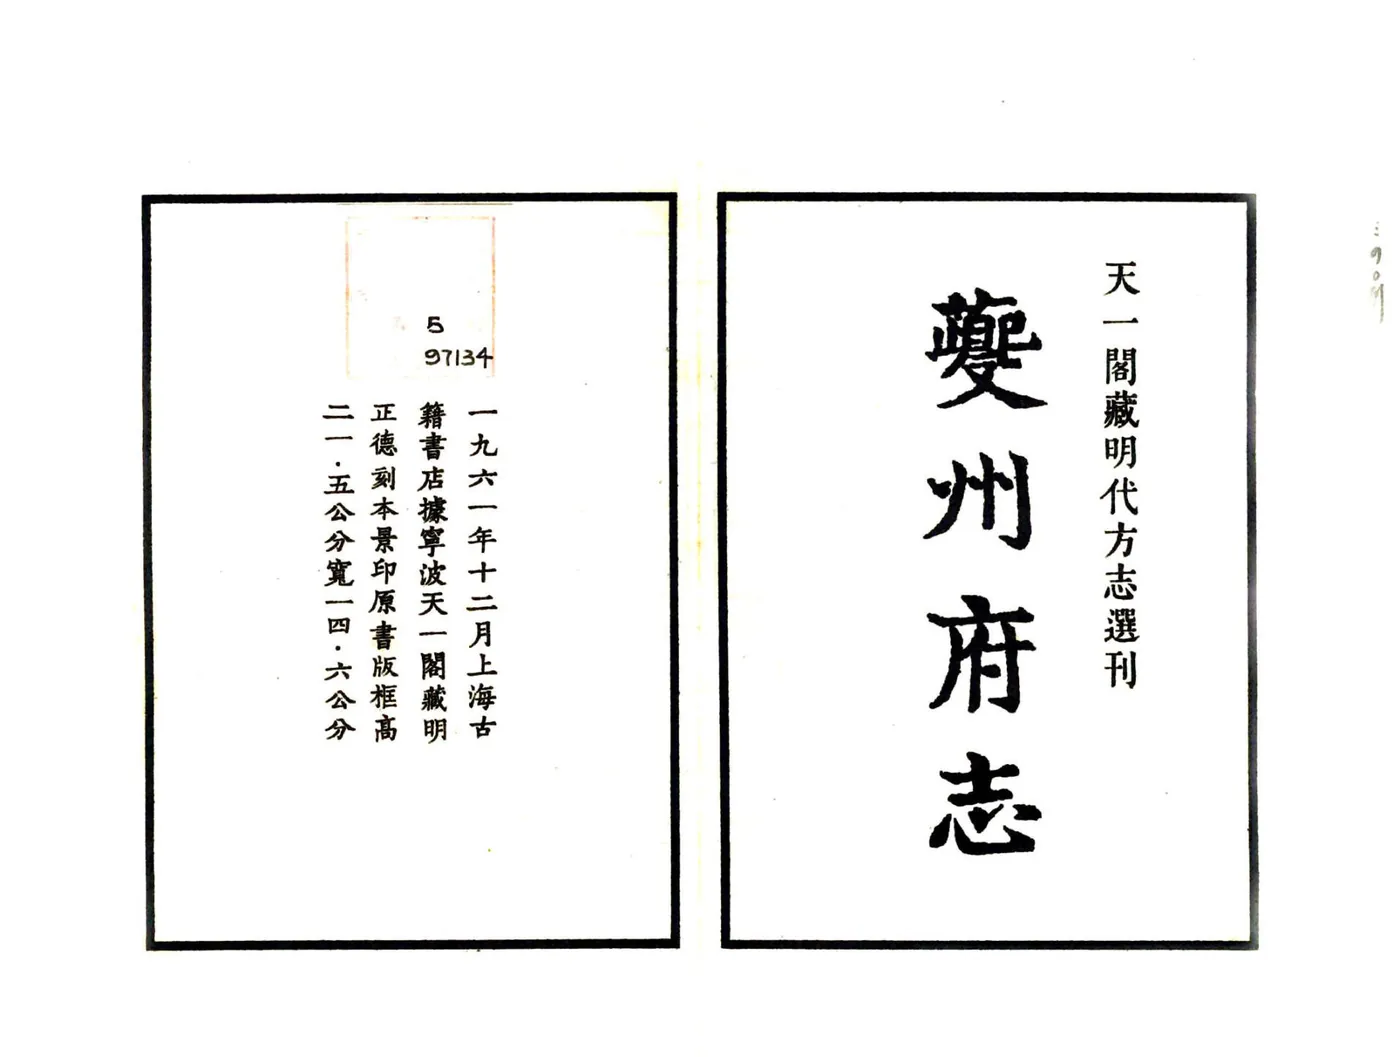 天一閣藏明代方志選刊
夔州府志
5
97134
一九六一年十二月上海古
籍書店據寧波天一閣藏明
正德刻本景印原書版框高
二一·五公分寬一四·六公分